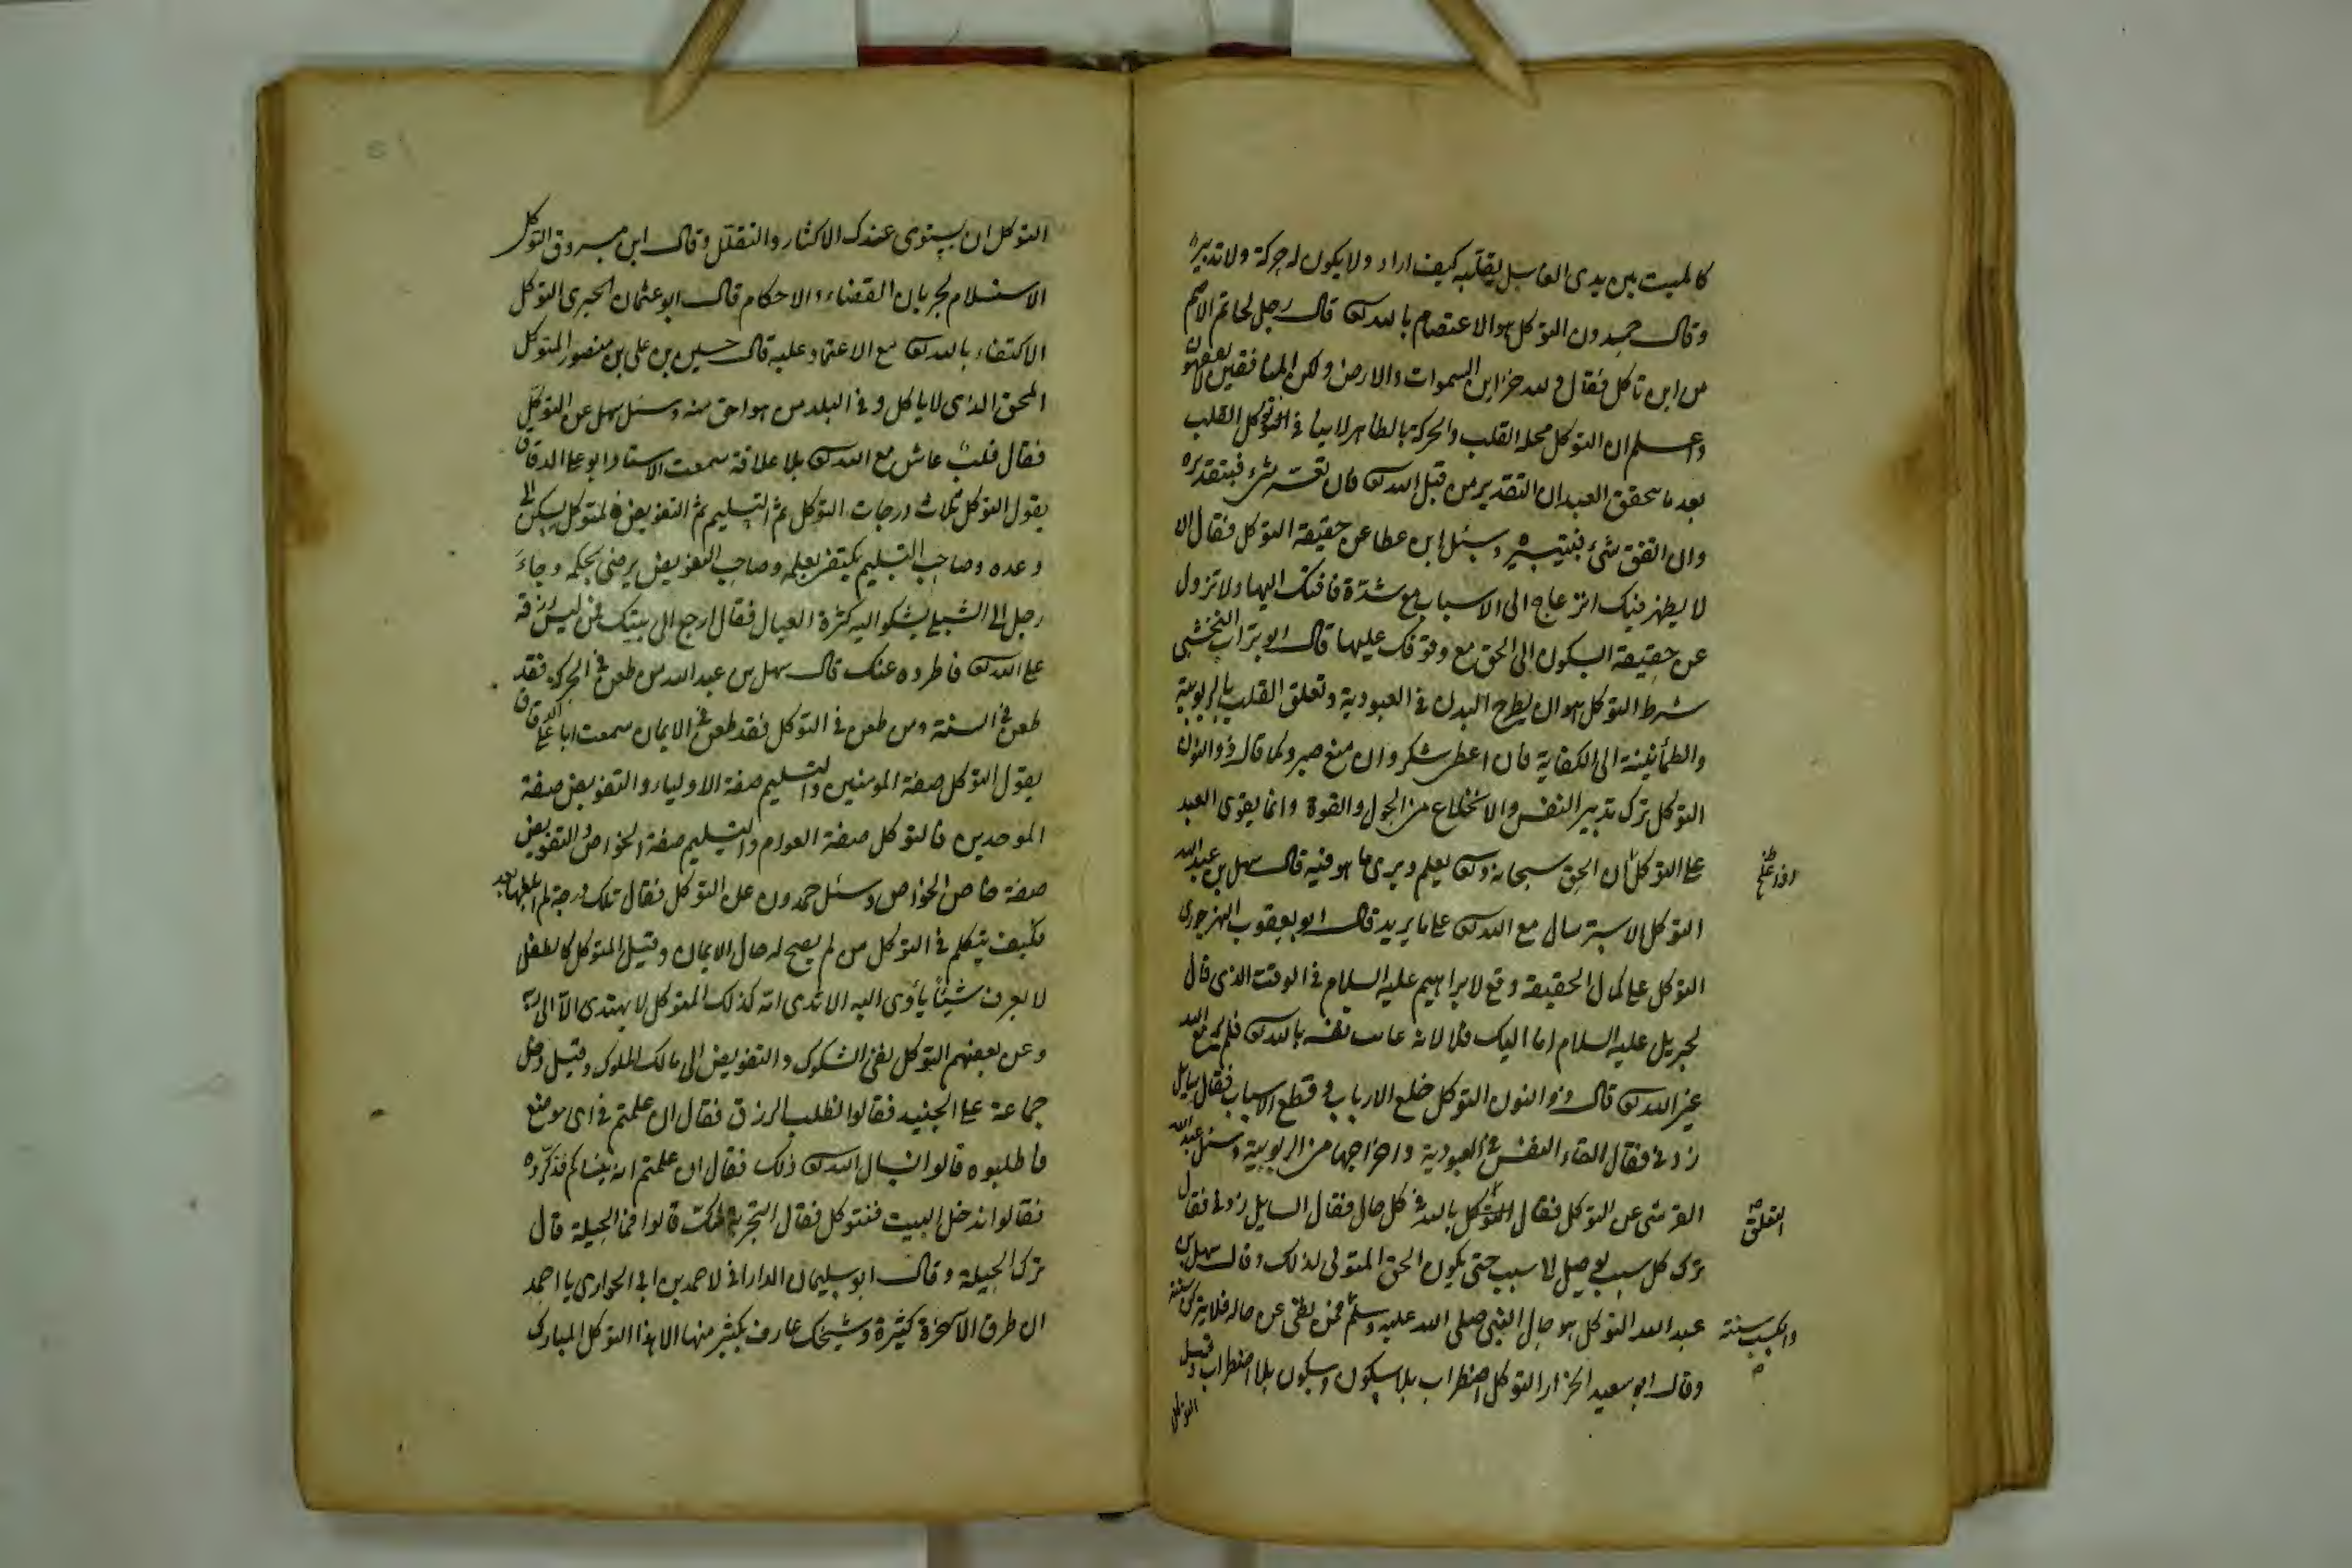 كالميت بين يدى الغاسل يقلبه كيف اراد ولا يكون له حركة ولا تدبيره
وقال حمدون التوكل هو الاعتصام بالله تع قال رجل لحاتم الاصم
من اين تاكل فقال ولله خزاين السموات والارض ولكن المنافقين لا يفقهون
واعلم ان التوكل محله القلب والحركة بالظاهر لا ينافى التوكل القلب
بعد ما تحقق العبد ان التقدير من قبل الله تع فان تعسر شىء فبتقديره
وان اتفق شىء فبتيسيره وسئل ابن عطا عن حقيقة التوكل فقال ان
لا يظهر فيك انزعاج الى الاسباب مع شدة فاقتك اليها ولا تزول
عن حقيقة السكون الى الحق مع وقوفك عليها قال ابو تراب النخشبى
شرط التوكل هو ان يطرح البدن فى العبودية وتعلق القلب بالربوبية
والطمأنينة الى الكفاية فان اعطى شكر وان منع صبر وكما قال ذو النون
التوكل ترك تدبير النفس والانخلاع من الحول والقوة وانما يقوى العبد
على التوكل ان الحق سبحانه وتع يعلم ويرى ما هو فيه قال سهل بن عبد الله
اذا علم
التوكل الاسترسال مع الله تع على ما يريد قال ابو يعقوب النهرجورى
التوكل على كمال الحقيقة وقع لابراهيم عليه السلام فى الوقت الذى قال
لجبريل عليه السلام اما اليك فلا لانه غابت نفسه بالله تع فلم ير مع الله
غير الله تع قال ذو النون التوكل خلع الارباب وقطع الاسباب فقال سايل
زدنى فقال القاء النفس فى العبودية واخراجها من الربوبية وسئل عبد الله
القرشى عن التوكل فقال التوكل بالله فى كل حال فقال السايل زدنى فقال
التعلق صح
ترك كل سبب يوصل الى سبب حتى يكون الحق المتولى لذلك وقال سهل بن
عبد الله التوكل هو حال النبى صلى الله عليه وسلم فمن بقى عن حاله فلا يتركن سنته
والكسب سنته صح
وقال ابو سعيد الخزاز التوكل اضطراب بلا سكون وسكون بلا اضطراب وقيل
التوكل
التوكل ان يستوى عندك الاكثار والتقلل وقال ابن مسروق التوكل
الاستسلام لجريان القضاء والاحكام قال ابو عثمان الحيرى التوكل
الاكتفاء بالله تع مع الاعتماد عليه قال حسين بن على بن منصور المتوكل
المحق الذى لا ياكل وفى البلد من هو احق منه وسئل سهل عن التوكل
فقال قلب عاش مع الله تع بلا علاقة سمعت الاستاد ابو على الدقاق
يقول التوكل ثلاث درجات التوكل ثم التسليم ثم التفويض فالمتوكل يسكن الى
وعده وصاحب التسليم يكتفى بعلمه وصاحب التفويض يرضى بحكمه وجاء
رجل الى الشبلى يشكو اليه كثرة العيال فقال ارجع الى بيتك فمن ليس رزقه
على الله تع فاطرده عنك قال سهل بن عبد الله من طعن فى الحركة فقد
طعن فى السنة ومن طعن فى التوكل فقد طعن فى الايمان سمعت ابا على الدقاق
يقول التوكل صفة المومنين والتسليم صفة الاولياء والتفويض صفة
الموحدين فالتوكل صفة العوام والتسليم صفة الخواص والتفويض
صفة خاص الخواص وسئل حمدون عن التوكل فقال تلك درجة لم ابلغها بعد
فكيف يتكلم فى التوكل من لم يصح له حال الايمان وقيل المتوكل كالطفل
لا يعرف شيئا يأوى اليه الا ثدى امه كذلك المتوكل لا يهتدى الا الى ربه
وعن بعضهم التوكل نفى الشكوك والتفويض الى مالك الملوك وقيل دخل
جماعة على الجنيد فقالوا نطلب الرزق فقال ان علمتم فى اى موضع
فاطلبوه قالوا نسال الله تع ذلك فقال ان علمتم انه ينساكم فذكروه
فقالوا ندخل البيت فنتوكل فقال التجربة شك قالوا فما الحيلة قال
ترك الحيلة وقال ابو سليمان الدارانى لاحمد بن ابى الحوارى يا احمد
ان طرق الآخرة كثيرة وشيخك عارف بكثير منها الا هذا التوكل المبارك